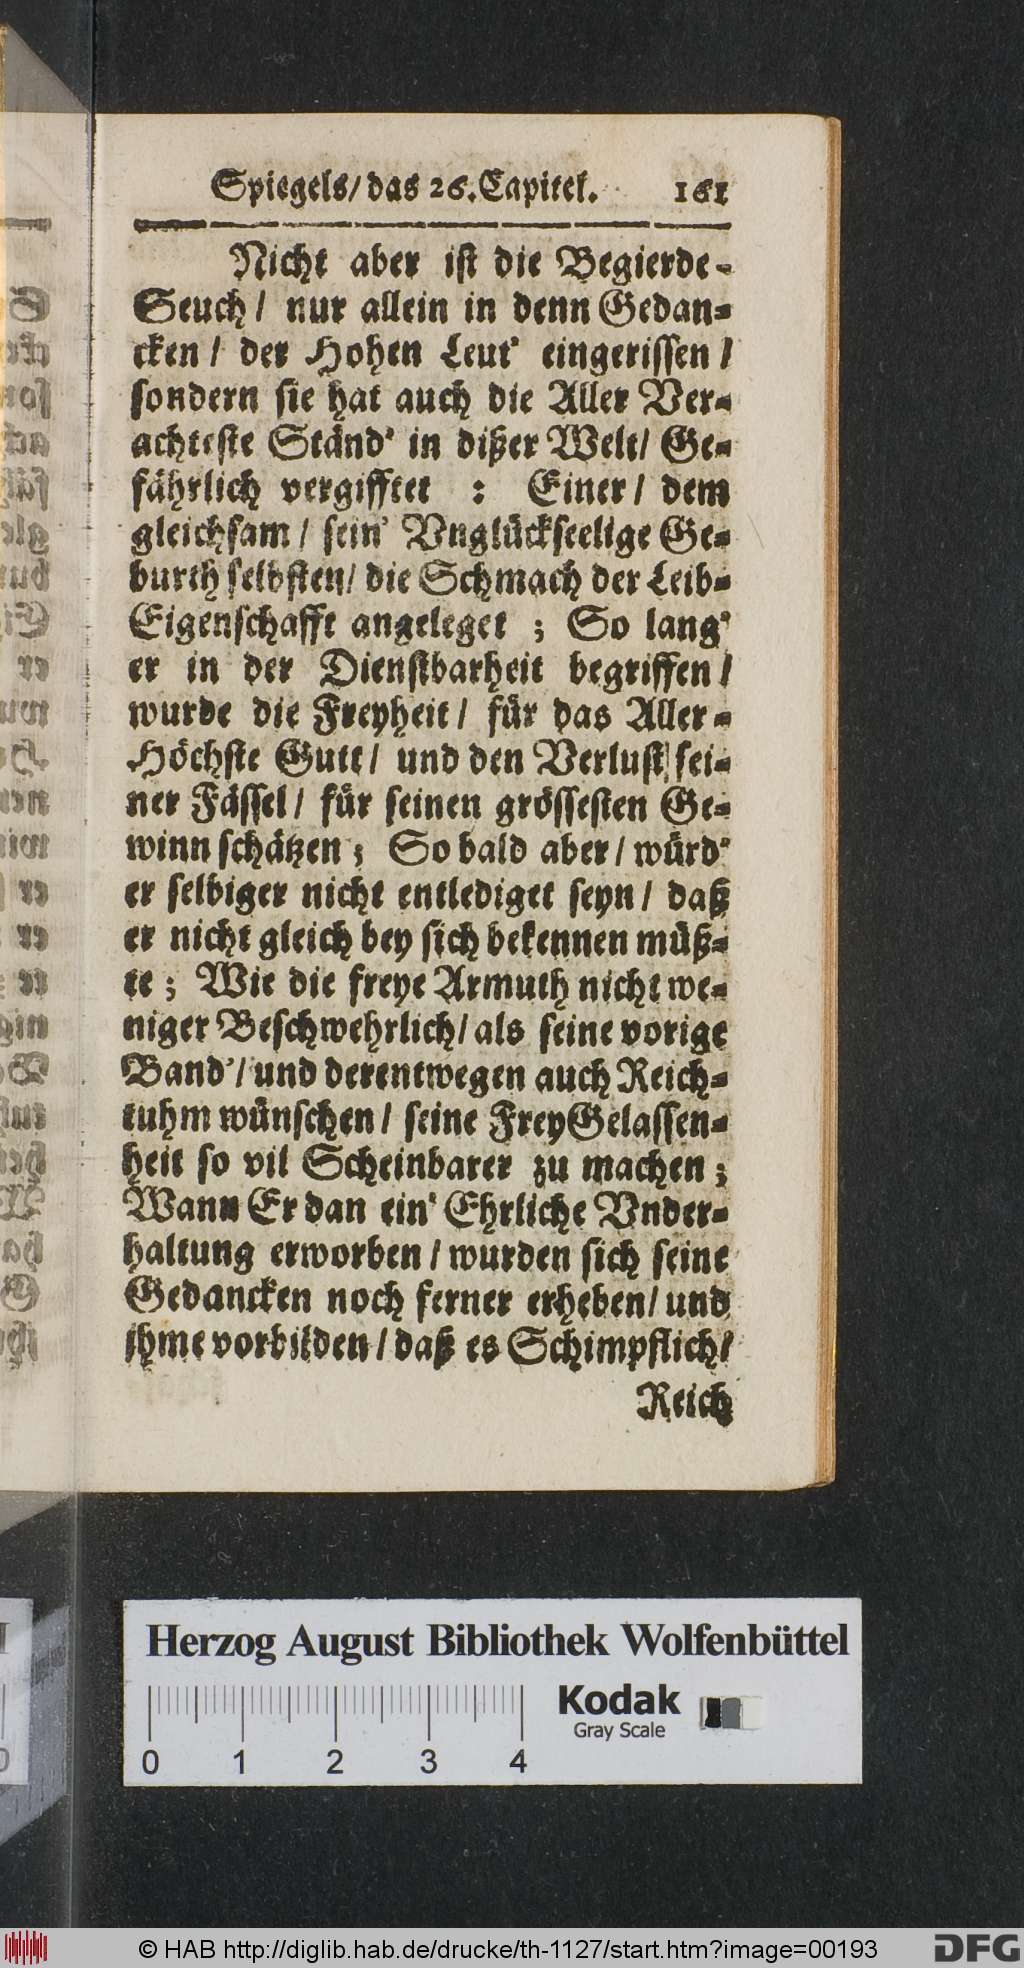 Spiegels/ das 26. Capitel. 161
Nicht aber ist die Begierde-
Seuch/ nur allein in denn Gedan-
cken/ der Hohen Leut' eingerissen/
sondern sie hat auch die Aller Ver-
achteste Ständ' in dißer Welt/ Ge-
fährlich vergifftet : Einer/ dem
gleichsam/ sein' Vnglückseelige Ge-
burth selbsten/ die Schmach der Leib-
Eigenschafft angeleget ; So lang'
er in der Dienstbarheit begriffen/
wurde die Freyheit/ für das Aller-
Höchste Gutt/ und den Verlust sei-
ner Fässel/ für seinen grössesten Ge-
winn schätzen ; So bald aber/ würd'
er selbiger nicht entlediget seyn/ daß
er nicht gleich bey sich bekennen müß-
te ; Wie die freye Armuth nicht we-
niger Beschwehrlich/ als seine vorige
Band'/ und derentwegen auch Reich-
tuhm wünschen/ seine FreyGelassen-
heit so vil Scheinbarer zu machen ;
Wann Er dan ein' Ehrliche Vnder-
haltung erworben/ wurden sich seine
Gedancken noch ferner erheben/ und
ihme vorbilden/ daß es Schimpflich/
Reich
Herzog August Bibliothek Wolfenbüttel
Kodak
Gray Scale
0 1 2 3 4
© HAB http://diglib.hab.de/drucke/th-1127/start.htm?image=00193
DFG